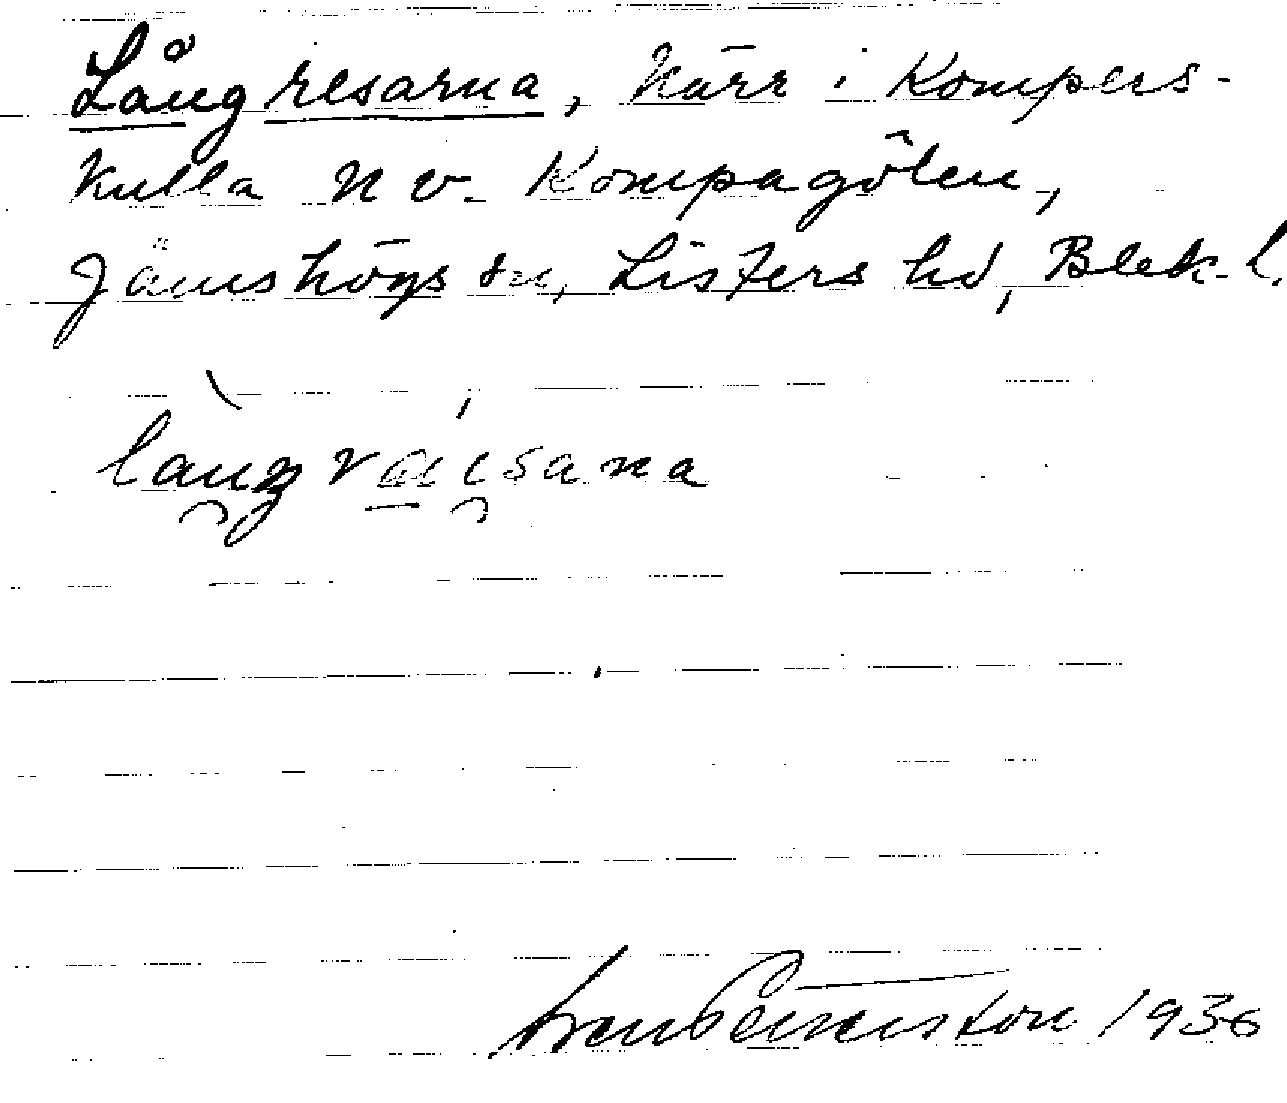 Långresarna, Kärr i Kompers-
kulla n v. Kompagölen,
Jämshögs sn, Listers hd, Blek. l.
långvaisana
1936